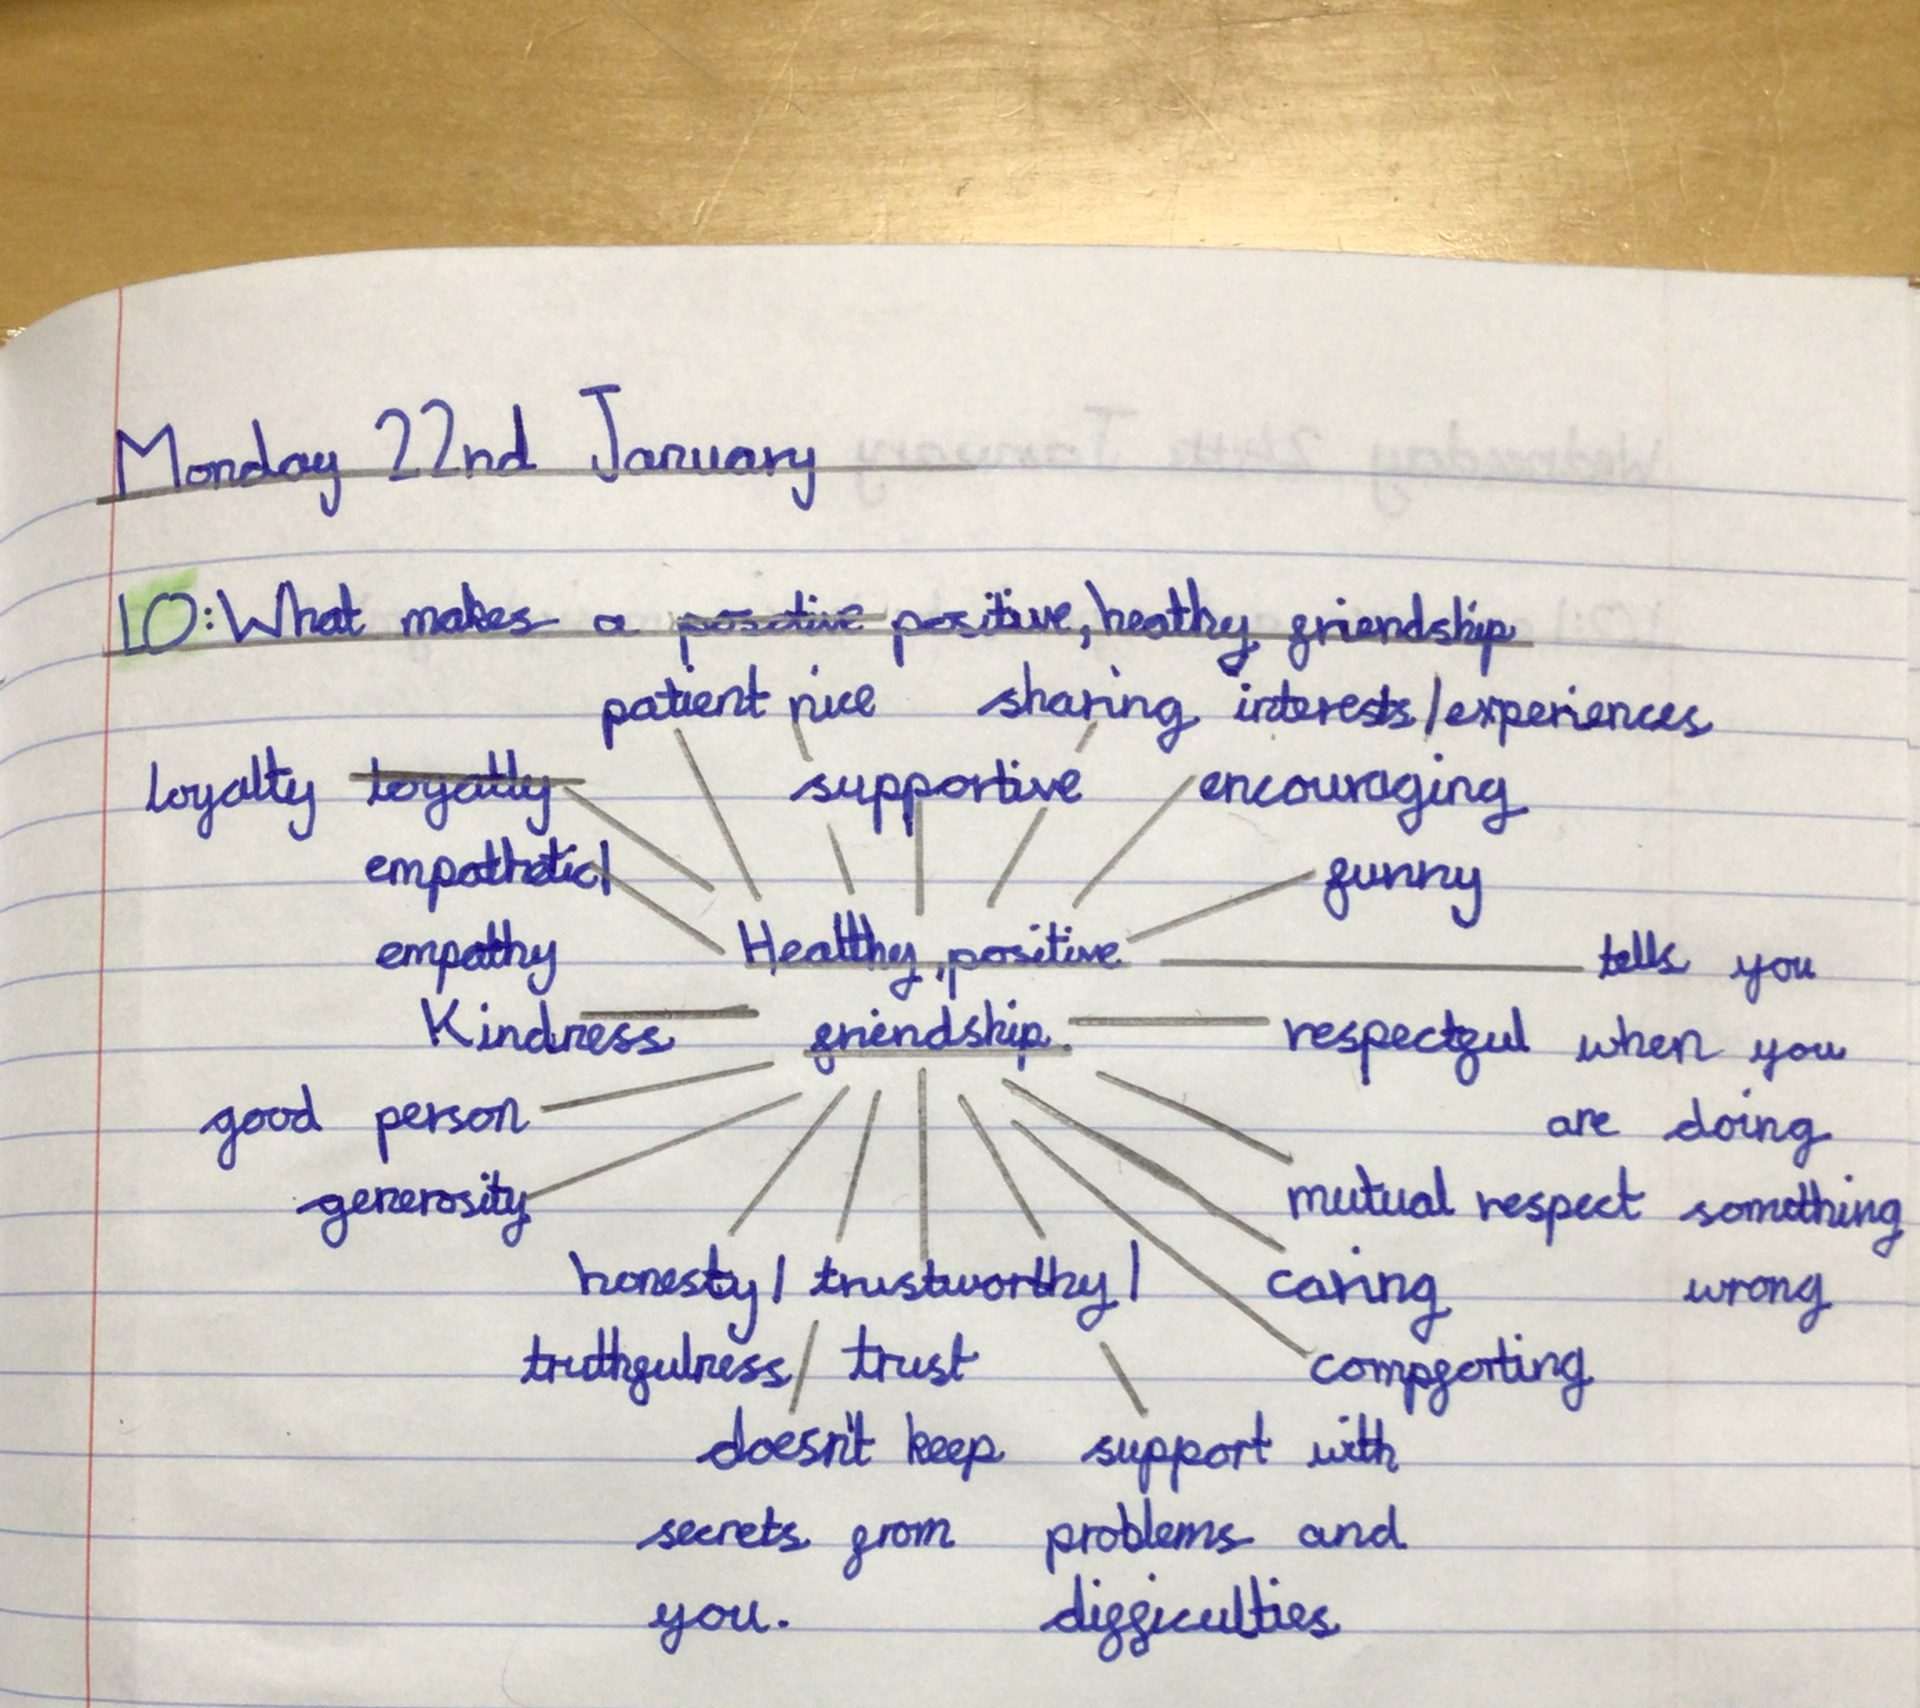 Monday 22nd January
LO: What makes a positive positive, heathy friendship
patient nice sharing interests/experiences
loyalty loyatly supportive encouraging
empathetic/ funny
empathy Healthy, positive tells you
Kindness friendship. respectful when you
good person are doing
generosity mutual respect something
honesty/ trustworthy/ caring wrong
truthfulness/ trust compforting
doesn't keep support with
secrets from problems and
you. difficulties